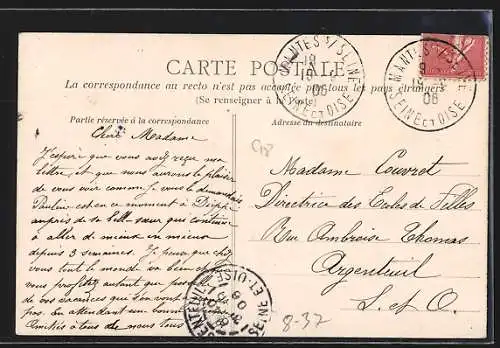 MANTES S/ SEINE
SEINE ET OISE
MANTES S/ SEINE
9
06
SEINE ET OISE
CARTE POSTALE
La correspondance au recto n'est pas acceptée par tous les pays étrangers
(Se renseigner à la Poste)
Partie réservée à la correspondance
Adresse du destinataire
Chère Madame
J'espère que vous avez reçu ma
lettre, et que nous aurons le plaisir
de vous voir comme je vous le demandais
Pauline est en ce moment à
auprès de sa belle-sœur qui continue
à aller de mieux en mieux
depuis 3 semaines. Je pense que chez
vous tout le monde va bien et que
vous profitez autant que possible
de vos vacances que s'en vont
En attendant un bonne
Amitiés à tous de nous tous
Madame Couvret
Directrice des Ecoles de Filles
Rue Ambroise Thomas
Argenteuil
S. et O.
ARGENTEUIL
SEINE-ET-OISE
8-37